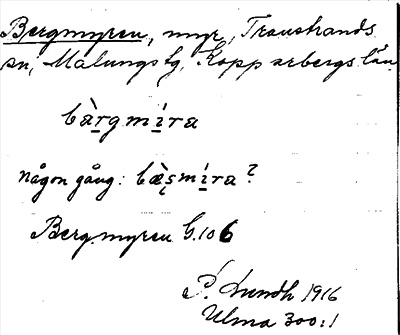 Bergmyren, myr, Transtrands
sn, Malungs tg, Kopparbergs län
bàrgmíra
någon gång: bæ̀s̨míra?
Bergmyren G.106
P. Lundh 1916
Ulma 300:1